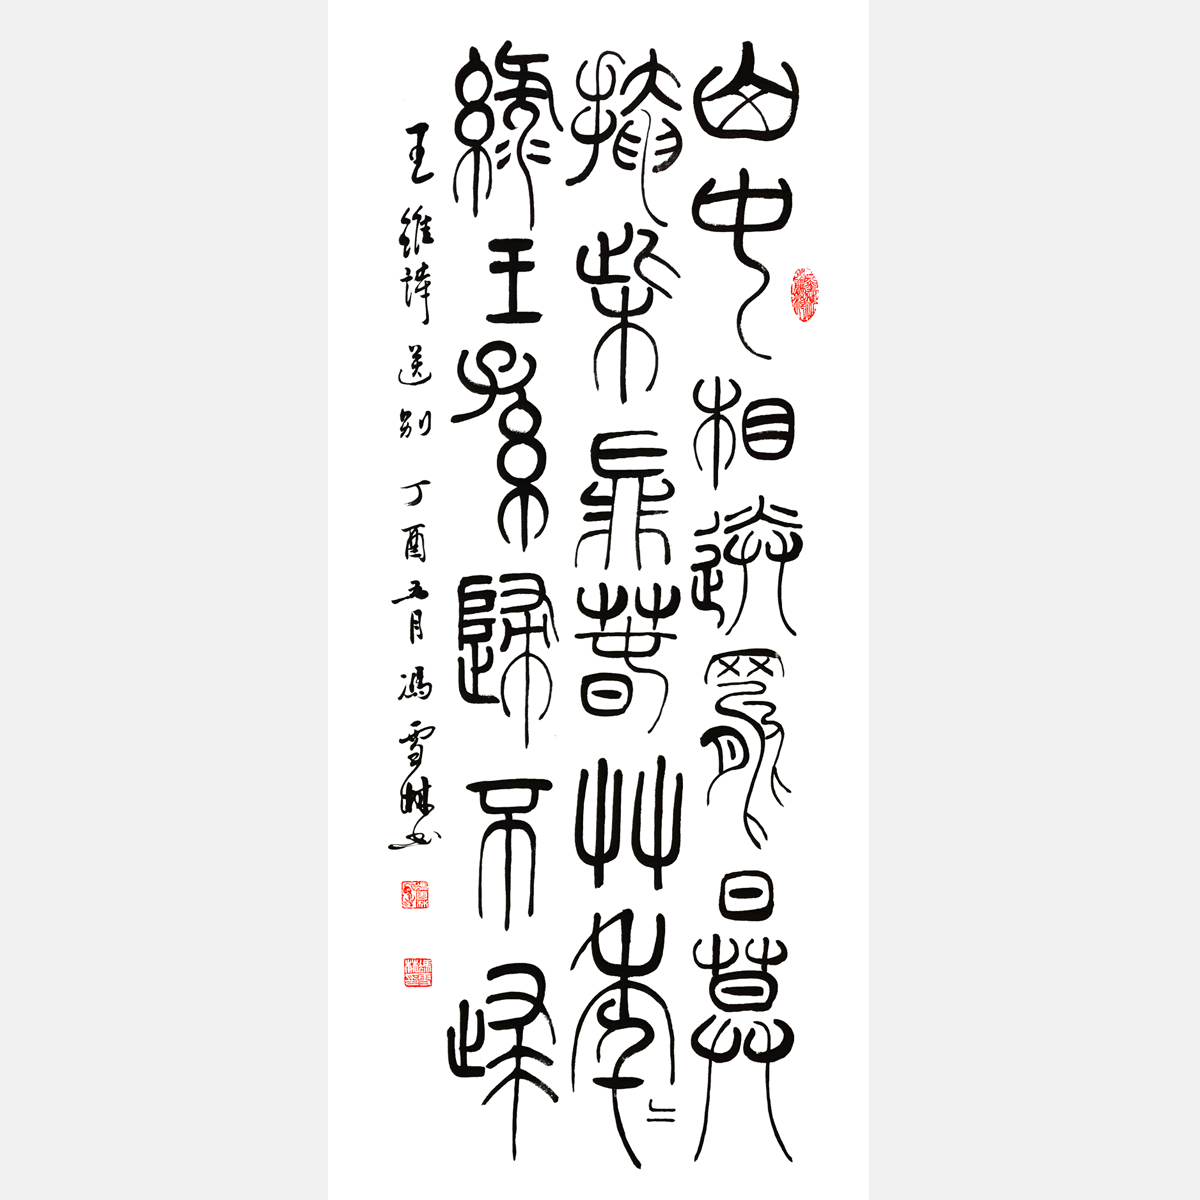 山中相送罷日暮
掩柴扉春草年々
綠王孫歸不歸
王維詩送别 丁酉五月馮雪林书